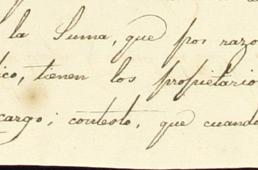 la Suma, que por razo
ico, tienen los propietario
cargo; contesto, que cuando